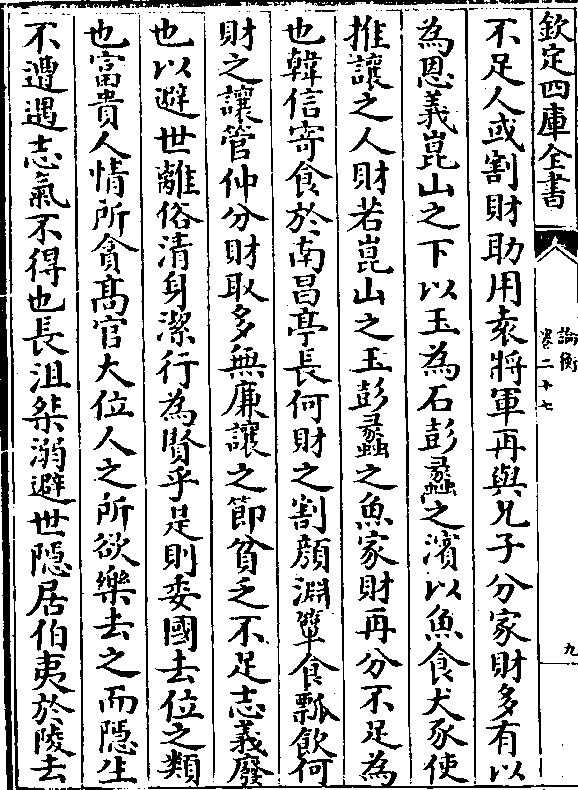 欽定四庫全書
論衡
卷二十七
九
不足人或割財助用袁將軍再與兄子分家財多有以
為恩義崑山之下以玉為石彭蠡之濱以魚食犬豕使
推讓之人財若崑山之玉彭蠡之魚家財再分不足為
也韓信寄食於南昌亭長何財之割顔淵簞食瓢飲何
財之讓管仲分財取多無廉讓之節貧乏不足志義廢
也以避世離俗清身潔行為賢乎是則委國去位之類
也富貴人情所貪髙官大位人之所欲樂去之而隱生
不遭遇志氣不得也長沮桀溺避世隱居伯夷於陵去